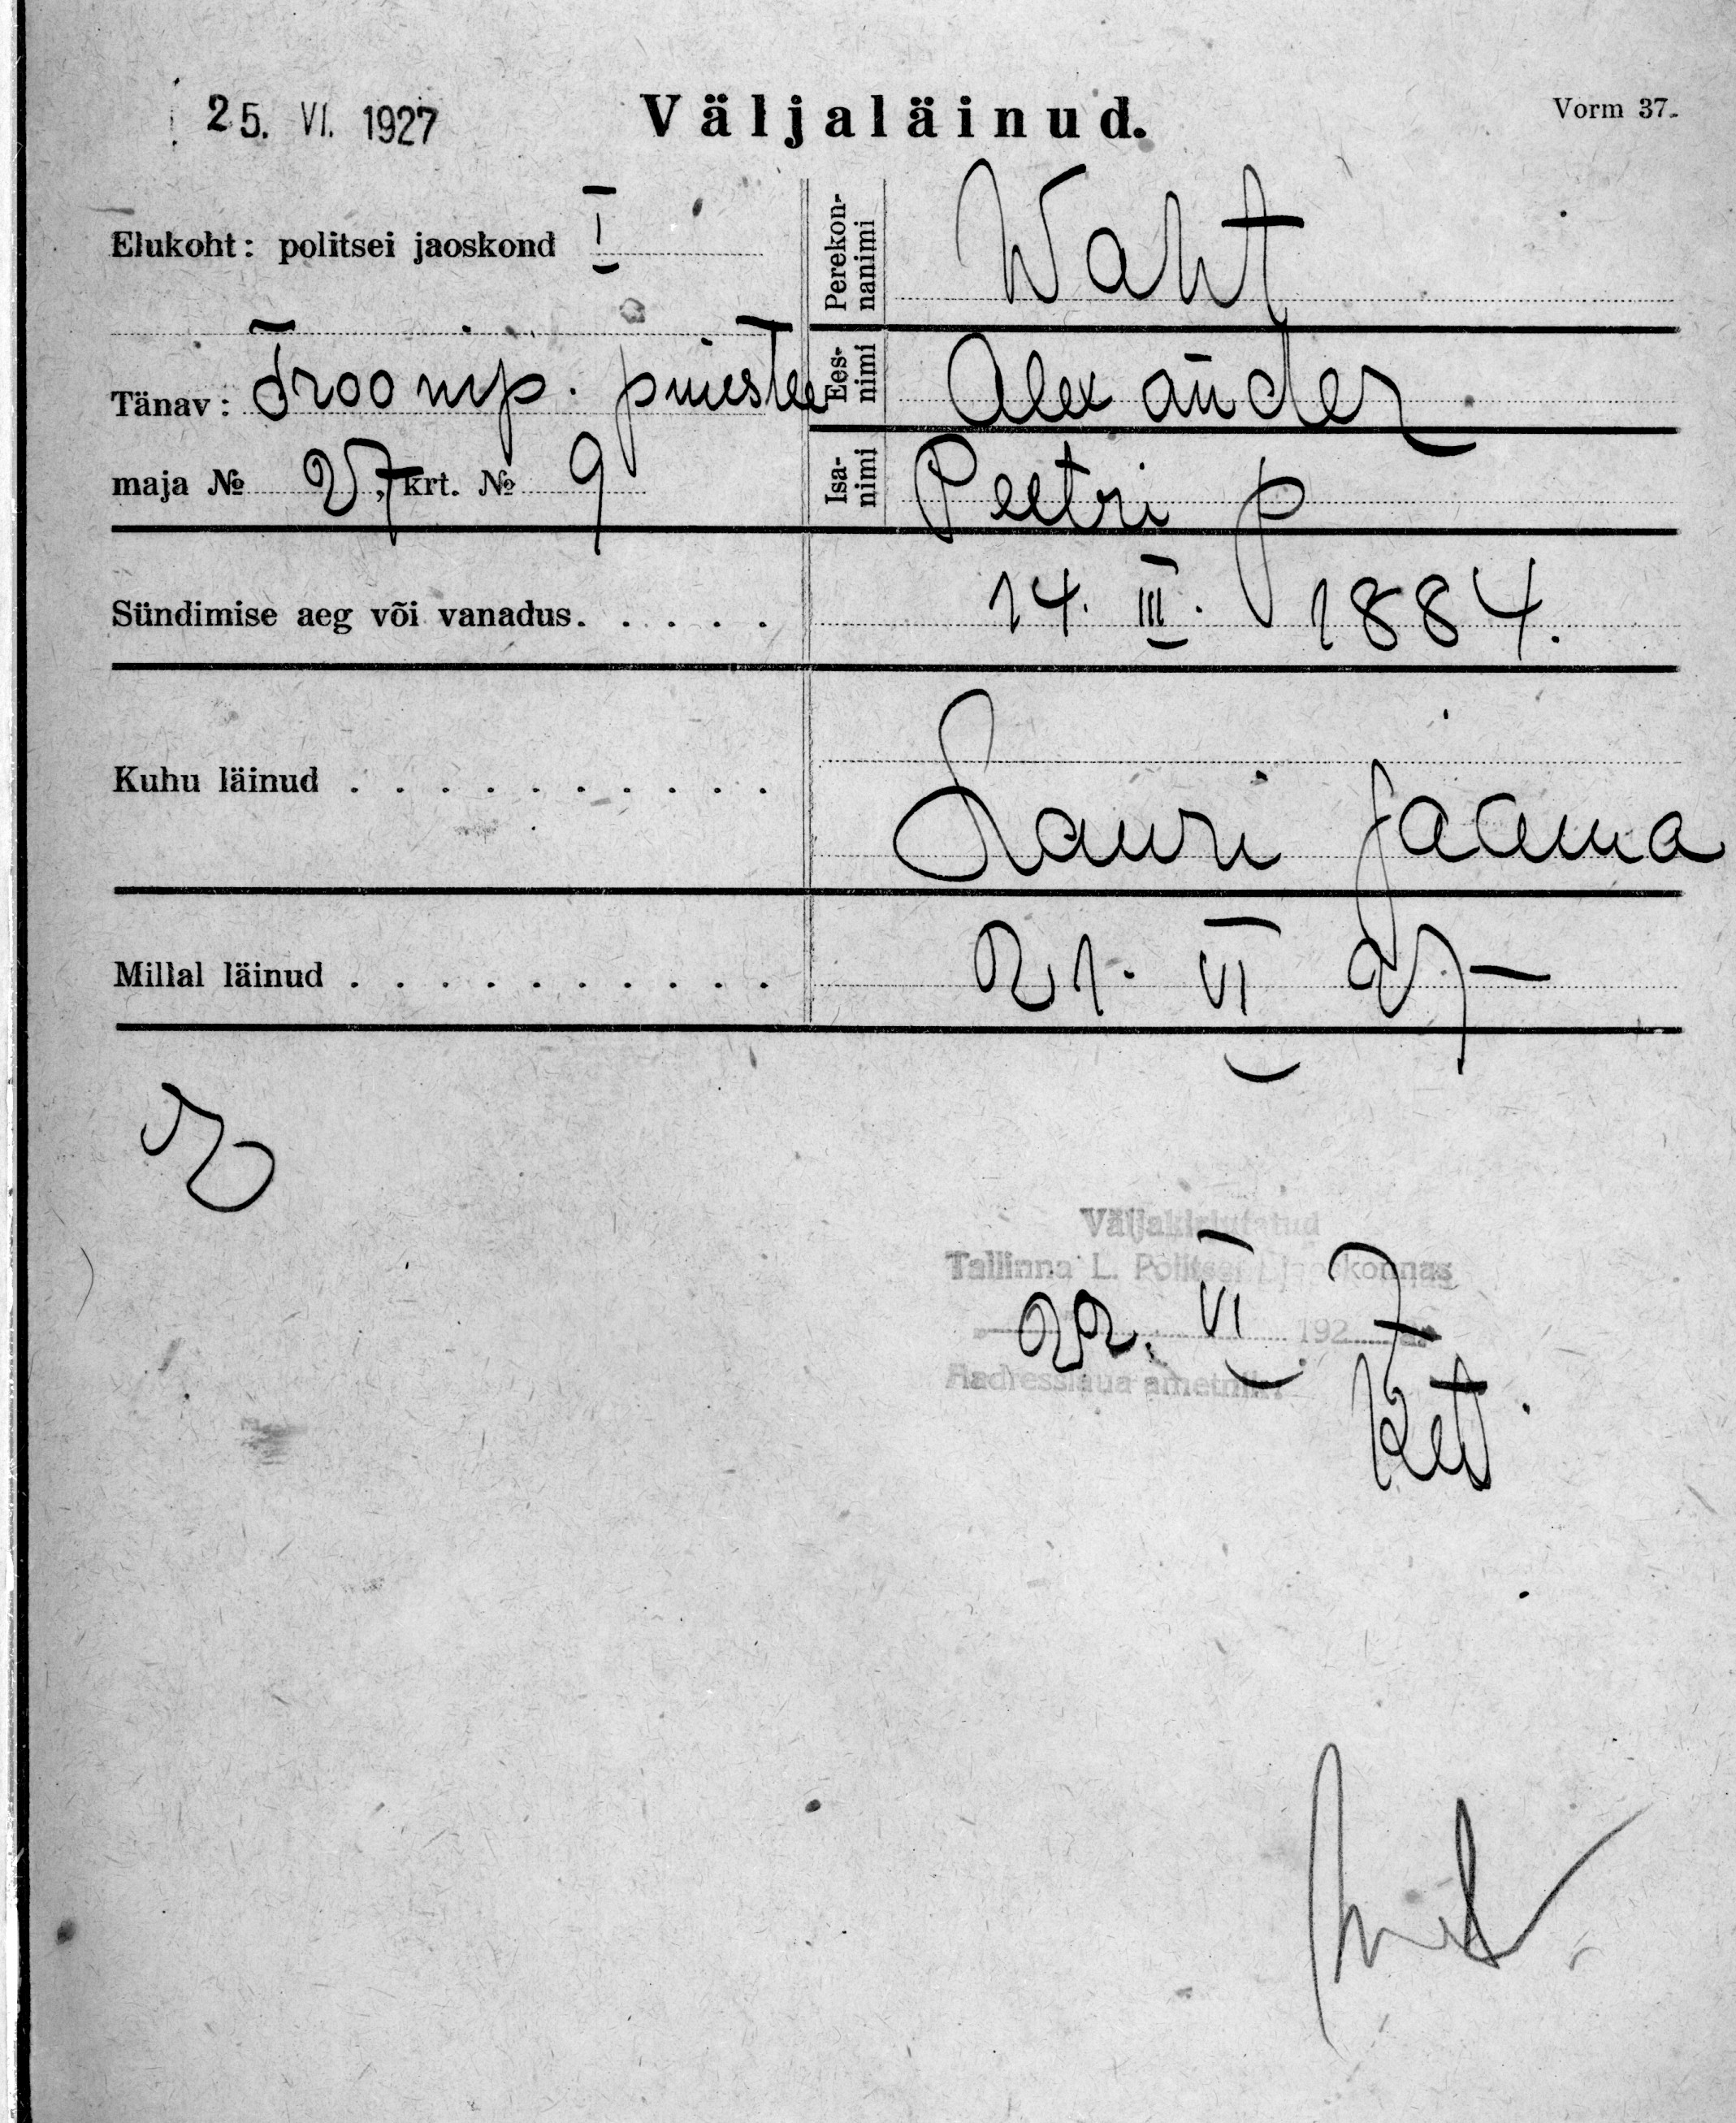 25. VI. 1927
Väljaläinud.
Vorm 37.
Elukoht: politsei jaoskond I
Perekonnanimi Waht
Tänav: Troomp. puiestee
Eesnimi Alexander
maja № 27, krt. № 9
Isanimi Peetri p
Sündimise aeg või vanadus. . . . . 14. III. 1884.
Kuhu läinud . . . . . . . . . . Lauri jaama
Millal läinud . . . . . . . . . . 21. VI 27
Väljakirjutatud
Tallinna L. Politsei jaoskonnas
22. VI 1927
Aadresslaua ametnik: